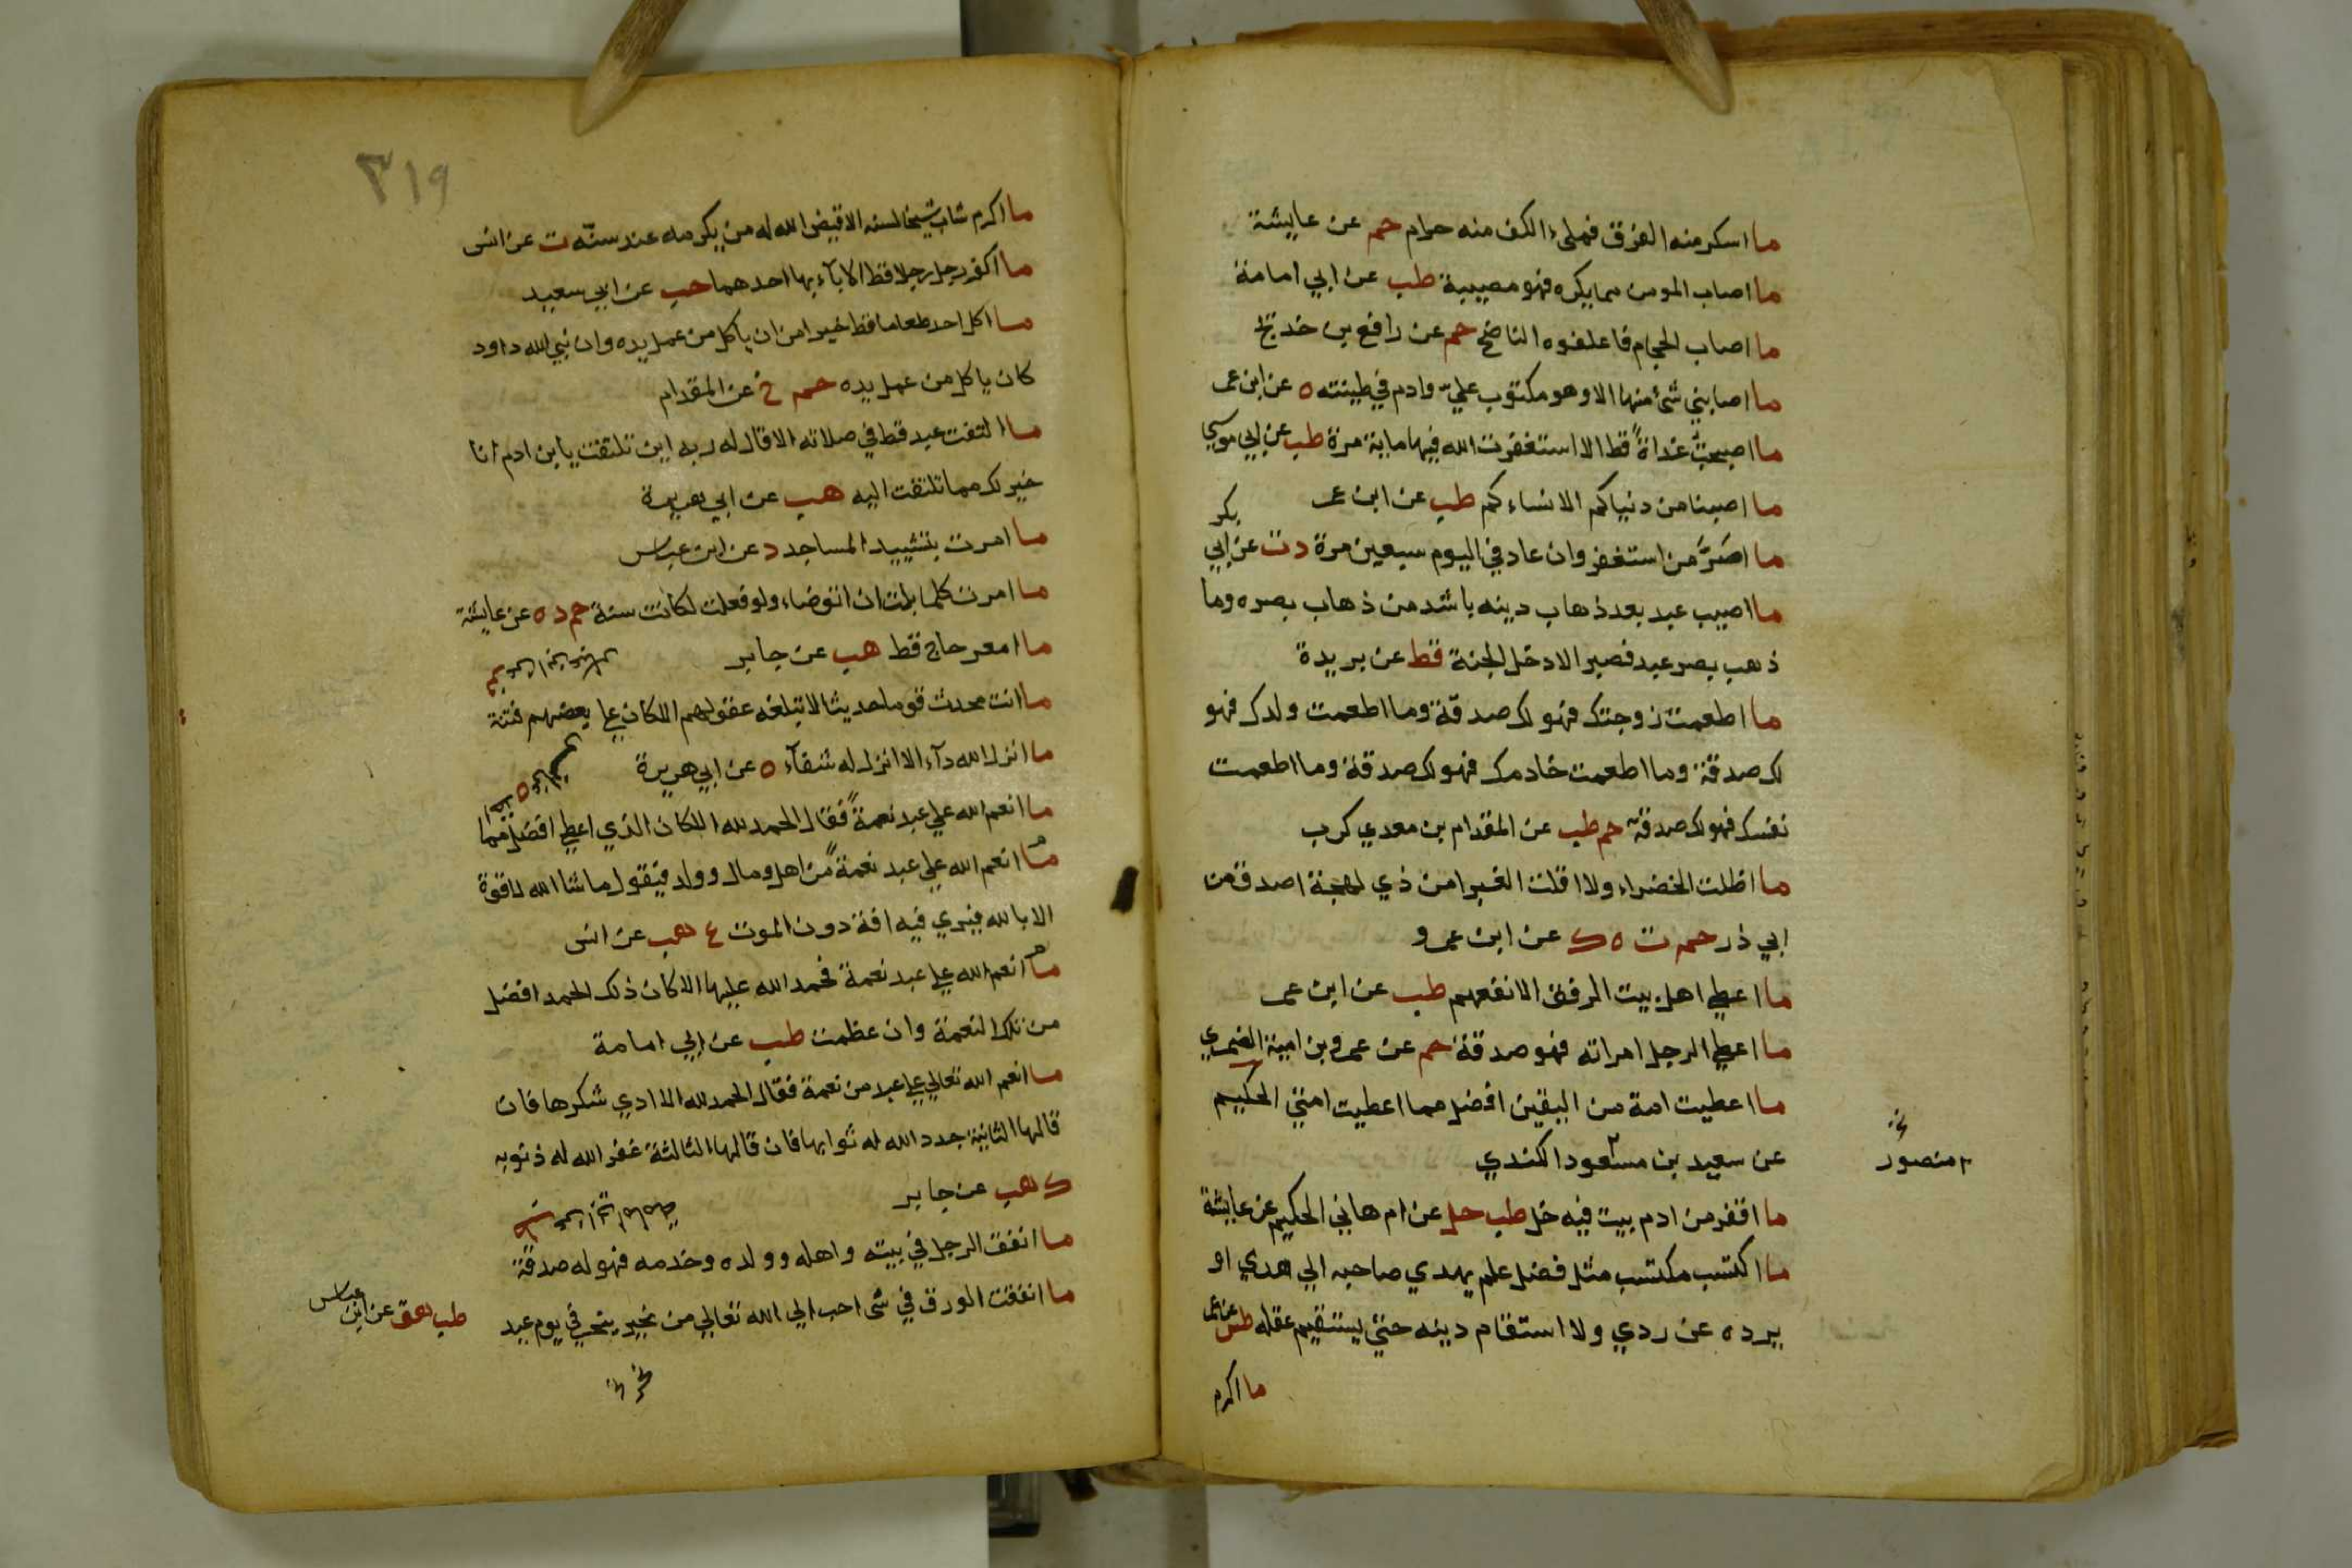 ما اسكر منه الفرق فملىء الكف منه حرام حم عن عايشة
ما اصاب المومن مما يكره فهو مصيبة طب عن ابي امامة
ما اصاب الحجام فاعلفوه الناضح حم عن رافع بن خديج
ما اصابني شئ منها الا وهو مكتوب عليّ وادم في طينته ه عن ابن عمر
ما اصبحت غداةً قط الا استغفرت الله فيها ماية مرة طب عن ابي موسي
ما اصبنا من دنياكم الا نساءكم طب عن ابن عمر
ما اصَرَّ من استغفر وان عاد في اليوم سبعين مرة د ت عن ابي بكر
ما اصيب عبد بعد ذهاب دينه باشد من ذهاب بصره وما
ذهب بصر عبد فصبر الا دخل الجنة خط عن بريدة
ما اطعمت زوجتك فهو لك صدقة وما اطعمت ولدك فهو
لك صدقة وما اطعمت خادمك فهو لك صدقة وما اطعمت
نفسك فهو لك صدقة حم طب عن المقدام بن معدي كرب
ما اظلت الخضراء ولا اقلت الغبرا من ذي لهجة اصدق من
ابي ذر حم ت ه ك عن ابن عمرو
ما اعطي اهل بيت الرفق الا نفعهم طب عن ابن عمر
ما اعطي الرجل امراته فهو صدقة حم عن عمرو بن امية الضمري
ما اعطيت امة من اليقين افضل مما اعطيت امتي الحكيم
عن سعيد بن مسعود الكندي
منصور
خ
ما اقفر من ادم بيت فيه خل طب حل عن ام هاني الحكيم عن عايشة
ما اكتسب مكتسب مثل فضل علم يهدي صاحبه الي هدي او
يرده عن ردي ولا استقام دينه حتي يستقيم عقله طس عن عمر
ما اكرم
٣١٩
ما اكرم شاب شيخا لسنه الا قيض الله له من يكرمه عند سنّه ت عن انس
ما اكفر رجل رجلا قط الا باء بها احدهما حب عن ابي سعيد
ما اكل احد طعاما قط خيرا من ان ياكل من عمل يده وان نبي الله داود
كان ياكل من عمل يده حم خ عن المقدام
ما التفت عبد قط في صلاته الا قال له ربه اين تلتفت يا ابن ادم انا
خير لك مما تلتفت اليه هب عن ابي هريرة
ما امرت بتشييد المساجد د عن ابن عباس
ما امرت كلما بلت ان اتوضاء ولو فعلت لكانت سنة حم د ه عن عايشة
ما امعر حاج قط هب عن جابر
ما انت محدث قوما حديثا لا تبلغه عقولهم الا كان علي بعضهم فتنة
ما انزل الله داء الا انزل له شفاء ه عن ابي هريرة
ما انعم الله علي عبد نعمةً فقال الحمد لله الا كان الذي اعطي افضل مما
ما انعم الله علي عبد نعمةً من اهل ومال وولد فيقول ما شا الله لا قوة
الا بالله فيري فيه افة دون الموت ع هب عن انس
ما انعم الله علي عبد نعمة فحمد الله عليها الا كان ذلك الحمد افضل
من تلك النعمة وان عظمت طب عن ابي امامة
ما انعم الله تعالي علي عبد من نعمة فقال الحمد لله الا ادي شكرها فان
قالها الثانية جدد الله له ثوابها فان قالها الثالثة غفر الله له ذنوبه
ك هب عن جابر
ما انفق الرجل في بيته واهله وولده وخدمه فهو له صدقة
ما انفقت الورق في شي احب الي الله تعالي من نحير ينحر في يوم عيد
طب هق عن ابن عباس